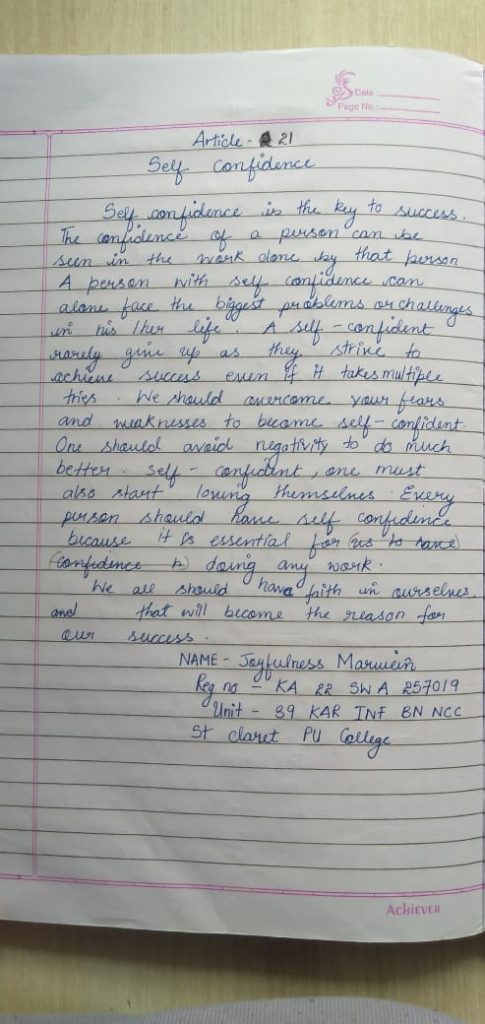 Date :
Page No. :
Article - 21
Self confidence
Self confidence is the key to success.
The confidence of a person can be
seen in the work done by that person
A person with self confidence can
alone face the biggest problems or challenges
in his / her life. A self - confident
rarely give up as they strive to
achieve success even if it takes multiple
tries. We should overcome your fears
and weaknesses to become self-confident.
One should avoid negativity to do much
better. Self - confident, one must
also start loving themselves. Every
person should have self confidence
because it is essential for (us to have)
(confidence in) doing any work.
We all should have faith in ourselves,
and that will become the reason for
our success.
NAME - Joyfulness Marwein
Reg no - KA 22 SWA 257019
Unit - 39 KAR INF BN NCC
St claret PU College
ACHIEVER